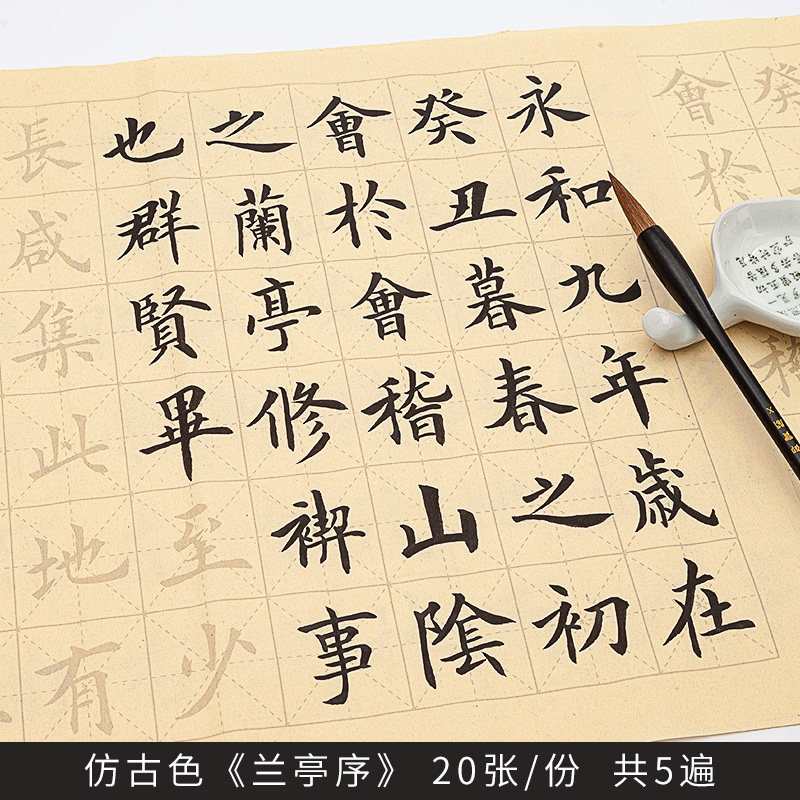 永和九年歳在
癸丑暮春之初
會於會稽山陰
之蘭亭修禊事
也群賢畢至少
長咸集此地有
癸
會於
稽
仿古色《兰亭序》 20张/份 共5遍